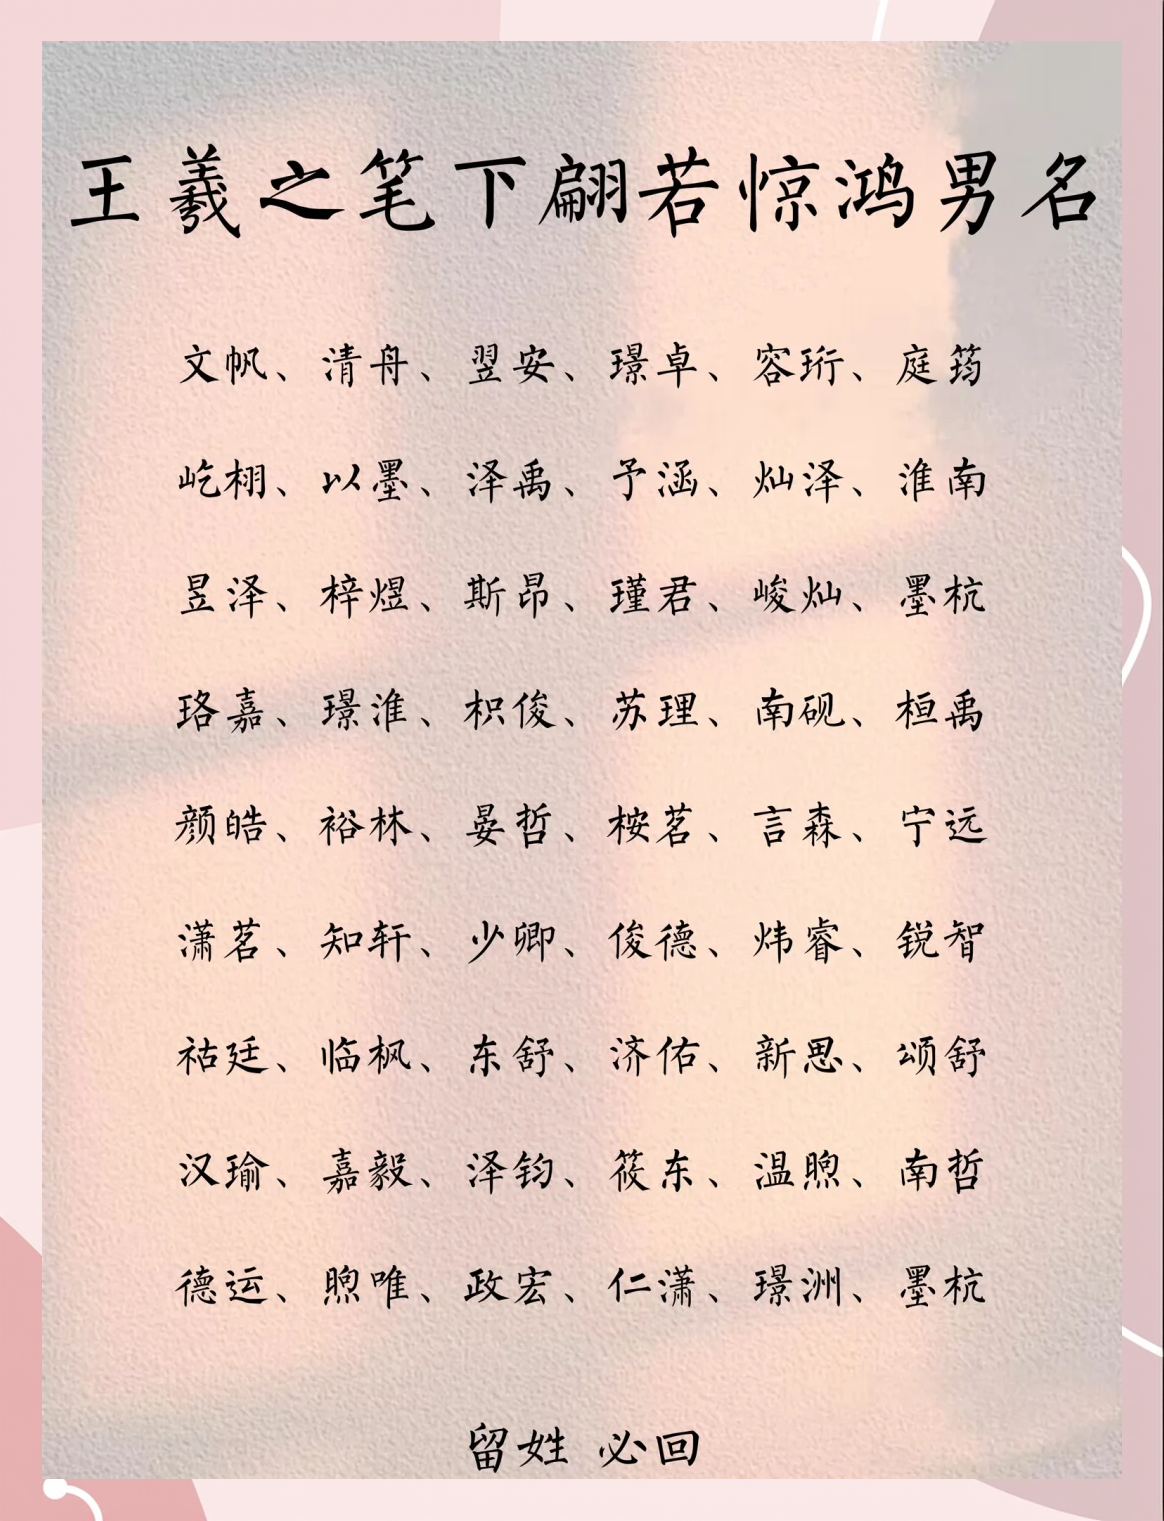 王羲之笔下翩若惊鸿男名
文帆、清舟、翌安、璟卓、容珩、庭筠
屹栩、以墨、泽禹、予涵、灿泽、淮南
昱泽、梓煜、斯昂、瑾君、峻灿、墨杭
珞嘉、璟淮、枳俊、苏理、南砚、桓禹
颜皓、裕林、晏哲、桉茗、言森、宁远
潇茗、知轩、少卿、俊德、炜睿、锐智
祜廷、临枫、东舒、济佑、新思、颂舒
汉瑜、嘉毅、泽钧、筱东、温煦、南哲
德运、煦唯、政宏、仁潇、璟洲、墨杭
留姓 必回